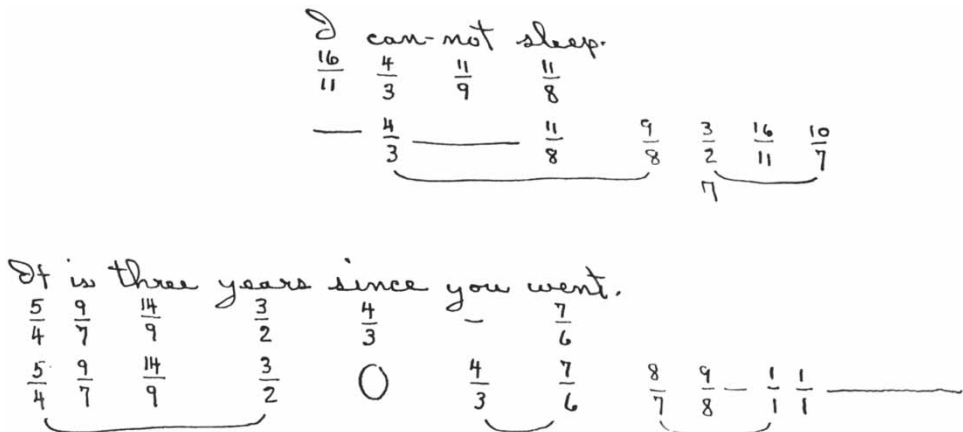 I can-not sleep.
16/11 4/3 11/9 11/8
— 4/3 — 11/8 9/8 3/2 16/11 10/7
7
It is three years since you went.
5/4 9/7 14/9 3/2 4/3 – 7/6
5/4 9/7 14/9 3/2 O 4/3 7/6 8/7 9/8 — 1/1 1/1 —